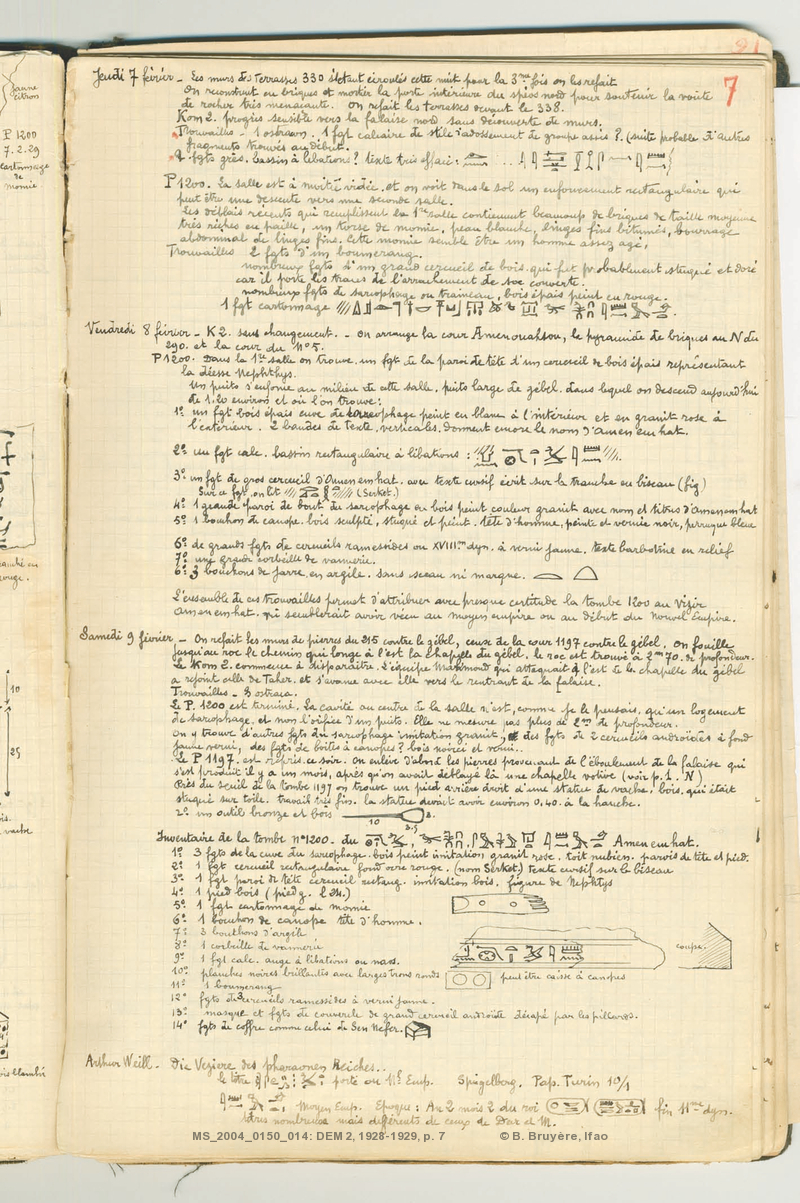 7
Jeudi 7 février _ Les murs des terrasses 330 s'étant écroulés cette nuit pour la 3me fois on les refait
On reconstruit en briques et mortier la porte intérieure du spéos nord pour soutenir la voûte
de rocher très menaçante. On refait les terrasses devant le 338.
Kom 2. progrès sensible vers la falaise nord sans découverte de murs.
Trouvailles _ 1 ostracon. 1 fgt calcaire de stèle adossement de groupe assis ? (suite probable d'autres
fragments trouvés au début.
2 fgts grès. bassin à libations ? texte très effacé :
P 1200. La salle est à moitié vidée et on voit dans le sol un enfoncement rectangulaire qui
peut être une descente vers une seconde salle.
Les déblais récents qui remplissent la 1re salle contiennent beaucoup de briques de taille moyenne
très riches en paille, un torse de momie, peau blanche, linges fins bitumés, bourrage
abdominal de linges fins. Cette momie semble être un homme assez agé,
Trouvailles 2 fgts d'un boumerang.
nombreux fgts d'un grand cercueil de bois qui fut probablement stuqué et doré
car il porte les traces de l'arrachement de son couverte.
nombreux fgts de sarcophage ou traineau, bois épais peint en rouge.
1 fgt cartonnage
Vendredi 8 février _ K 2. sans changement. _ On arrange la cour Amenouahsou, le pyramide de briques au N du
290. et la cour du No 5.
P 1200. Dans la 1re salle on trouve un fgt de la paroi de tête d'un cercueil de bois épais représentant
la déesse Nephthys.
Un puits s'enfonce au milieu de cette salle, puits large de gébel. dans lequel on descend aujourd'hui
de 1,20 environ et où l'on trouve :
1º un fgt bois épais cuve de sarcophage peint en blanc à l'intérieur et en granit rose à
l'extérieur. 2 bandes de texte verticales. donnent encore le nom d'Amen em hat.
2º un fgt calc. bassin rectangulaire à libations :
3º un fgt de gros cercueil d'Amenemhat. avec texte cursif écrit sur la tranche en biseau (fig)
Sur ce fgt on lit (Serket.)
4º 1 grande paroi de bout de sarcophage en bois peint couleur granit avec nom et titres d'Amenemhat
5º 1 bouchon de canope. bois sculpté, stuqué et peint. tête d'homme, peinte et vernie noir, perruque bleue
6º de grands fgts de cercueils ramessides ou XVIIIme dyn. à verni jaune. texte barbotine en relief
7º une grande corbeille de vannerie.
6º 3 bouchons de jarre, en argile. sans sceau ni marque.
L'ensemble de ces trouvailles permet d'attribuer avec presque certitude la tombe 1200 au Vizir
Amenemhat. qui semblerait avoir vécu au moyen empire ou au début du Nouvel Empire.
Samedi 9 février _ On refait les murs de pierres du 215 contre le gébel, ceux de la cour 1197 contre le gébel. On fouille
jusqu'au roc le chemin qui longe à l'est la chapelle du gébel. le roc est trouvé à 2m70. de profondeur.
Le Kom 2. commence à disparaître. L'équipe Mahmoud qui attaquait à l'est de la chapelle du gébel
a rejoint celle de Taher. et s'avance avec elle vers le rentrant de la falaise.
Trouvailles _ 3 ostraca.
Le P. 1200 est terminé. La cavité au centre de la salle n'est, comme je le pensais, qu'un logement
de sarcophage, et non l'orifice d'un puits. Elle ne mesure pas plus de 2m de profondeur.
On y trouve d'autres fgts du sarcophage imitation granit, des fgts de 2 cercueils androïdes à fond
jaune verni, des fgts de boîtes à canopes ? bois noirci et verni..
Le P 1197. est repris ce soir. On enlève d'abord les pierres provenant de l'éboulement de la falaise qui
s'est produit il y a un mois, après qu'on avait déblayé là une chapelle votive (voir p. 1. N)
Près du seuil de la tombe 1197 on trouve un pied arrière droit d'une statue de vache, bois, qui était
stuqué sur toile. travail très fin. la statue devait avoir environ 0,40. à la hanche.
2º un outil bronze et bois 10 3.5 3.
Inventaire de la tombe nº 1200. du Amen em hat.
1º 3 fgts de la cuve du sarcophage. bois peint imitation granit rose. toit nubien. parois de tête et pied.
2º 1 fgt cercueil rectangulaire fond ocre rouge. (nom Serket) texte cursif sur le biseau
3º 1 fgt paroi de tête cercueil rectang. imitation bois. figure de Nephtys
4º 1 pied bois (pied g.
5º 1 fgt cartonnage de momie
6º 1 bouchon de canope tête d'homme.
7º 3 bouchons d'argile
8º 1 corbeille de vannerie
9º 1 fgt calc. auge à libations ou naos.
10º planches noires brillantes avec larges trous ronds peut être caisse à canopes
11º 1 boumerang
12º fgts de 3 cercueils ramessides à verni jaune.
13º masque et fgts de couvercle de grand cercueil androïde décapé par les pillards.
14º fgts de coffre comme celui de Sen Nefer.
coupe.
Arthur Weill _ Die Veziere des pharaonen Reiches..
le titre porté au Nl Emp. Spiegelberg. Pap. Turin 10/1
Moyen Emp. Epoque : An 2 mois 2 du roi fin 11me dyn.
titres nombreux mais différents de ceux de
jaune
citron
P 1200
7.2.29
cartonnage
de
momie
10
25
MS_2004_0150_014: DEM 2, 1928-1929, p. 7 © B. Bruyère, Ifao